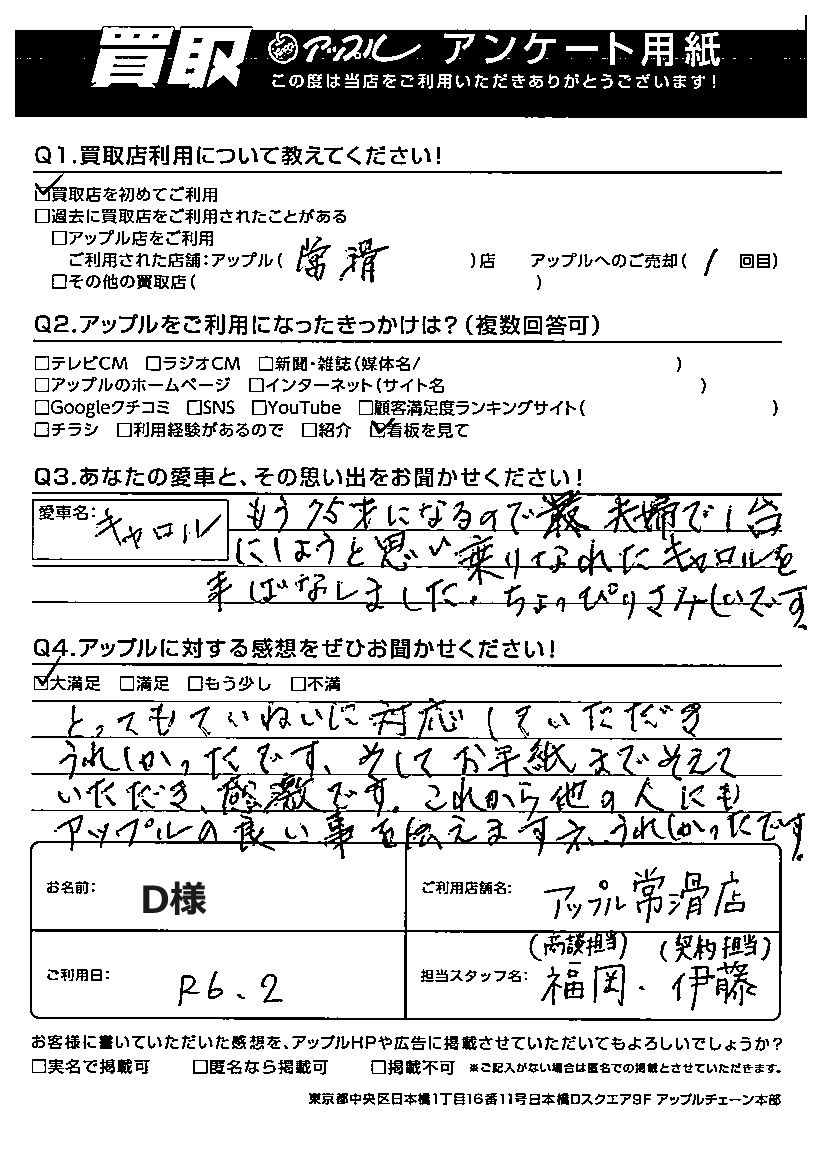 買取 アップル アンケート用紙
この度は当店をご利用いただきありがとうございます!
Q1.買取店利用について教えてください!
☑買取店を初めてご利用
□過去に買取店をご利用されたことがある
□アップル店をご利用
ご利用された店舗:アップル( 常滑 )店 アップルへのご売却( 1 回目)
□その他の買取店( )
Q2.アップルをご利用になったきっかけは?(複数回答可)
□テレビCM □ラジオCM □新聞・雑誌(媒体名/ )
□アップルのホームページ □インターネット(サイト名 )
□Googleクチコミ □SNS □YouTube □顧客満足度ランキングサイト( )
□チラシ □利用経験があるので □紹介 ☑看板を見て
Q3.あなたの愛車と、その思い出をお聞かせください!
愛車名:キャロル
もう75才になるので 夫婦で1台
にしようと思い乗りなれたキャロルを
手ばなしました。ちょっぴりさみしいです。
Q4.アップルに対する感想をぜひお聞かせください!
☑大満足 □満足 □もう少し □不満
とってもていねいに対応していただき
うれしかったです、そしてお手紙までそえて
いただき、感激です。これから他の人にも
アップルの良い事を伝えますネ、うれしかったです。
お名前: D様
ご利用店舗名: アップル常滑店
ご利用日: R6.2
(商談担当) (契約担当)
担当スタッフ名: 福岡・伊藤
お客様に書いていただいた感想を、アップルHPや広告に掲載させていただいてもよろしいでしょうか?
□実名で掲載可 □匿名なら掲載可 □掲載不可 ※ご記入がない場合は匿名での掲載とさせていただきます。
東京都中央区日本橋1丁目16番11号日本橋Dスクエア9F アップルチェーン本部